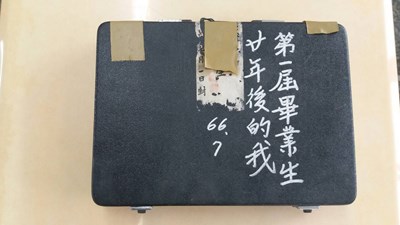 第一屆畢業生
廿年後的我
66.7
日封